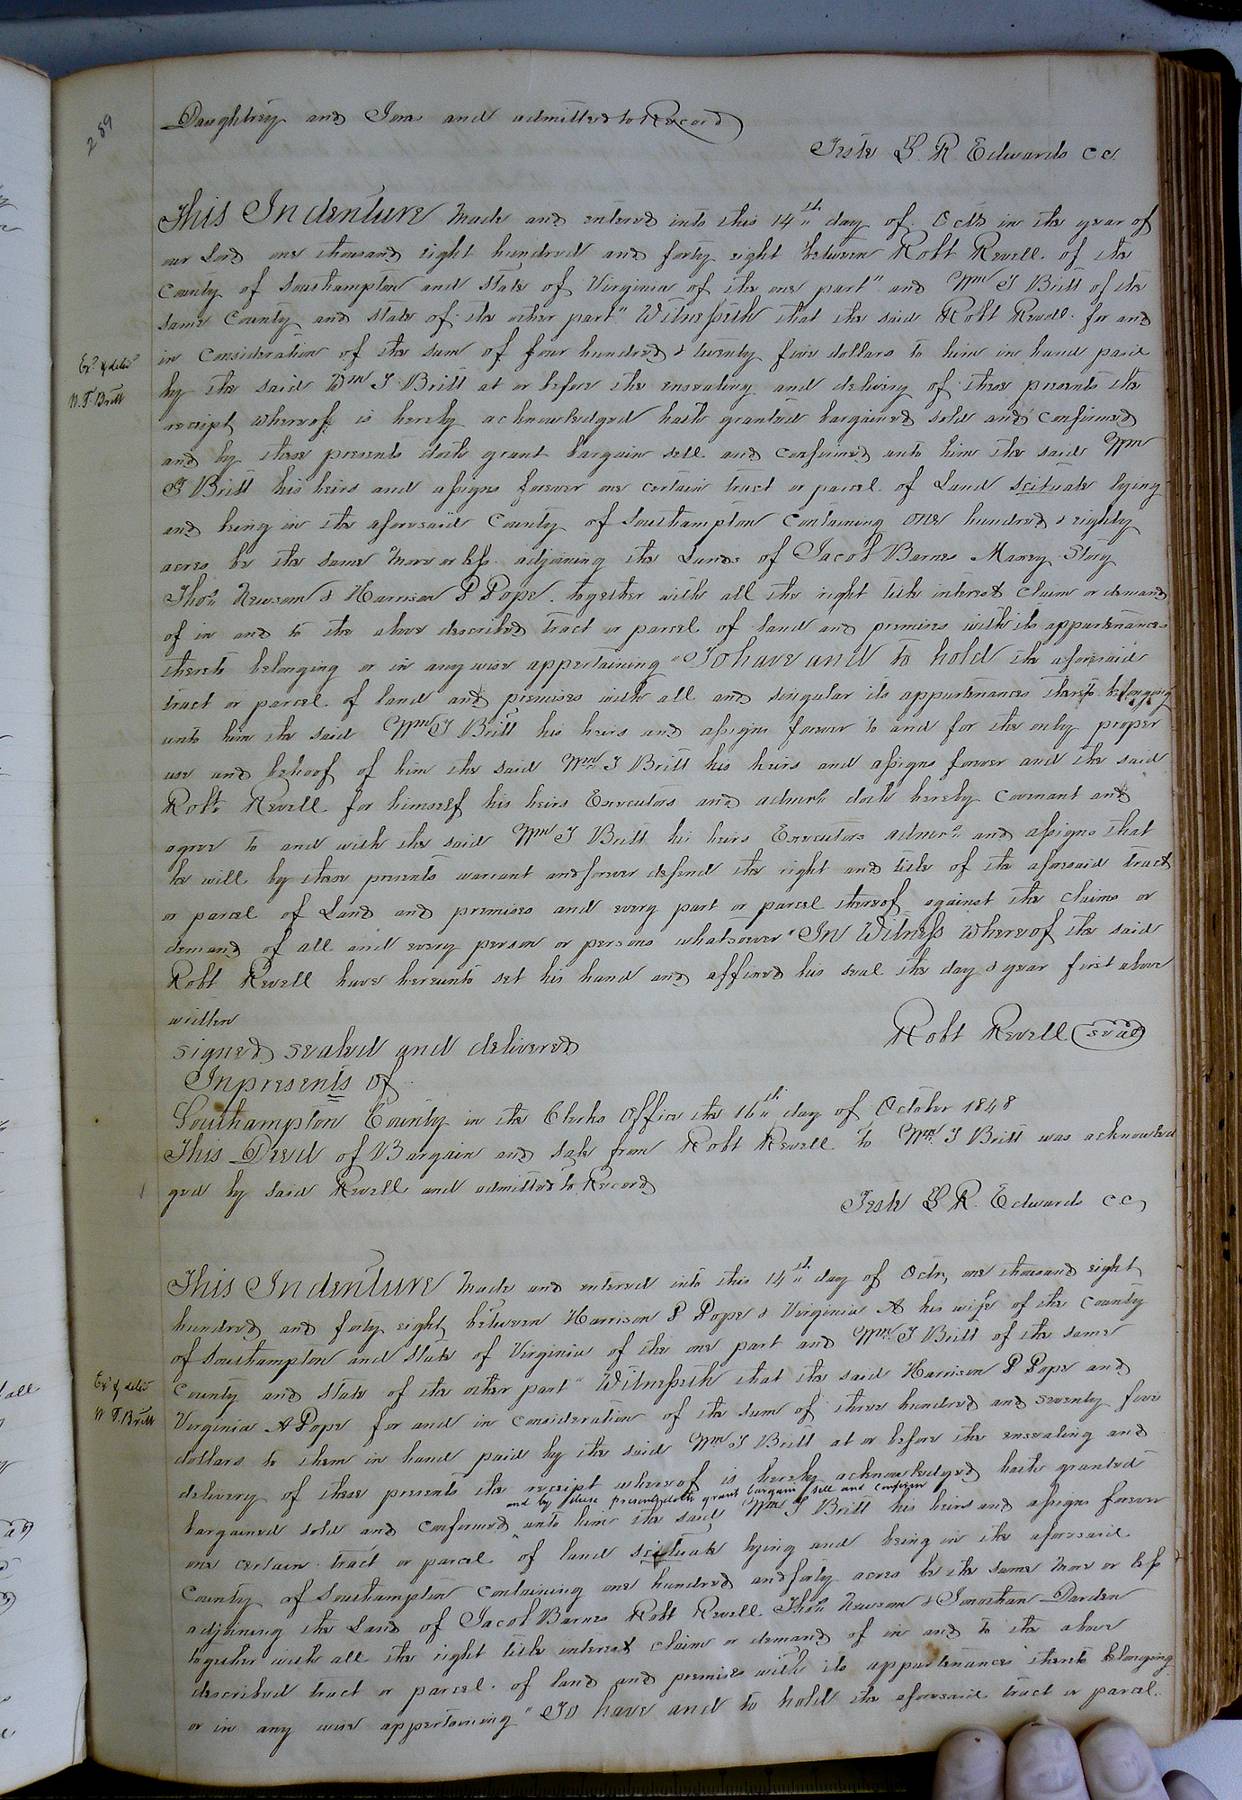 289
Daughtrey and Jom and admitted to Record
Teste L. R. Edwards CC.
This Indenture Made and entered into this 14th day of Octo in the year of
our Lord one thousand eight hundred and forty eight between Robt Revell of the
County of Southampton and State of Virginia of the one part" and Wm J Britt of the
same County and state of the other part" Witnesseth that the said Robt Revell for and
in consideration of the sum of four hundred & twenty five dollars to him in hand paid
Exd & deld
W. J. Britt
by the said Wm J Britt at or before the ensealing and delivry of these presents the
receipt whereof is hereby acknowledged hath granted bargained sold and confirmed
and by these presents doth grant bargain sell and confirmed unto him the said Wm
J Britt his heirs and assigns forever one certain tract or parcel of Land scituate lying
and being in the aforesaid County of Southampton Containing one hundred & eighty
acres be the same More or less adjoining the Lands of Jacob Barnes Maxey Story
Thos. Newsom & Harrison P Pope. together with all the right title interest Claim or demand
of in and to the above described tract or parcel of land and premises with its appurtenances
thereto belonging or in any wise appertaining "To have and to hold the aforesaid
tract or parcel of land and premises with all and singular its appurtenances thereto belonging
unto him the said Wm J Britt his heirs and assigns forever to and for the only proper
use and behoof of him the said Wm J Britt his heirs and assigns forever and the said
Robt Revell for himself his heirs Executors and admrs doth hereby Covenant and
agree to and with the said Wm J Britt his heirs Executors admrs and assigns that
he will by these presents warrant and forever defend the right and title of the aforesaid tract
or parcel of Land and premises and every part or parcel thereof against the Claims or
demand of all and every person or persons whatsoever" In Witness Whereof the said
Robt Revell have hereunto set his hand and affixed his seal the day & year first above
written
Robt Revell (seal)
signed sealed and delivered
In presents of
Southampton County in the Clerks Office the 16th day of October 1848
This Deed of Bargain and Sale from Robt Revell to Wm J Britt was acknowled
ged by said Revell and admitted to Record
Teste L R. Edwards CC,
This Indenture Made and entered into this 14th day of Octr, one thousand eight
hundred and forty eight between Harrison P Pope & Virginia A his wife of the County
of Southampton and State of Virginia of the one part and Wm J Britt of the same
Exd & deld
W J. Britt
County and State of the other part" Witnesseth that the said Harrison P Pope and
Virginia A Pope for and in consideration of the sum of three hundred and seventy five
dollars to them in hand paid by the said Wm J Britt at or before the ensealing and
delivery of these presents the receipt whereof is hereby acknowledged hath granted
and by these presents doth grant bargain sell and confirm
bargained sold and confirmed unto him the said Wm J Britt his heirs and assigns forever
one certain tract or parcel of land scituate lying and being in the aforesaid
County of Southampton Containing one hundred and forty acres be the same More or less
adjoining the Land of Jacob Barnes Robt Revell Thos. Newsom & Jonathan Darden
together with all the right title interest claim or demand of in and to the above
described tract or parcel of land and premises with its appurtenances thereto belonging
or in any wise appertaining" To have and to hold the aforesaid tract or parcel